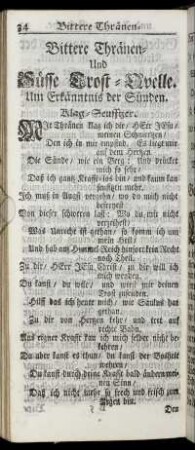 34 Bittere Thränen-
Bittere Thränen-
Und
Süsse Trost-Qvelle.
Um Erkänntnis der Sünden.
Klag-Seuffzer.
Mit Thränen klag ich dir, HErr JEsu,
meinen Schmertzen,
Den ich in mir empfind, Es liegt mir
auf dem Hertzen
Die Sünde, wie ein Berg, Und drücket
mich so sehr,
Daß ich gantz Krafft-los bin, und kaum kan
seufftzen mehr.
Ich muß in Angst verzagen, wo du mich nicht
befreyest
Von dieser schweren Last, Wo du mir nicht
verzeihest
Was Unrecht ist gethan, so komm ich um
mein Heil,
Und hab am Himmel-Reich hinfort kein Recht
noch Theil.
Zu dir, HErr JEsu Christ, zu dir will ich
mich wenden,
Du kanst, du wilt, und wirst mir deinen
Trost zusenden.
Hilff das ich heute mich, wie Saulus hat
gethan,
Zu dir von Hertzen kehr, und tret auf
rechte Bahn.
Aus eigner Krafft kan ich mich selber nicht be-
kehren,
Du aber kanst es thun, du kanst der Boßheit
wehren,
Du kanst durch deine Krafft bald ändern mei-
nen Sinn,
Daß ich nicht mehr so frech und frisch zum
Bösen bin.
Den